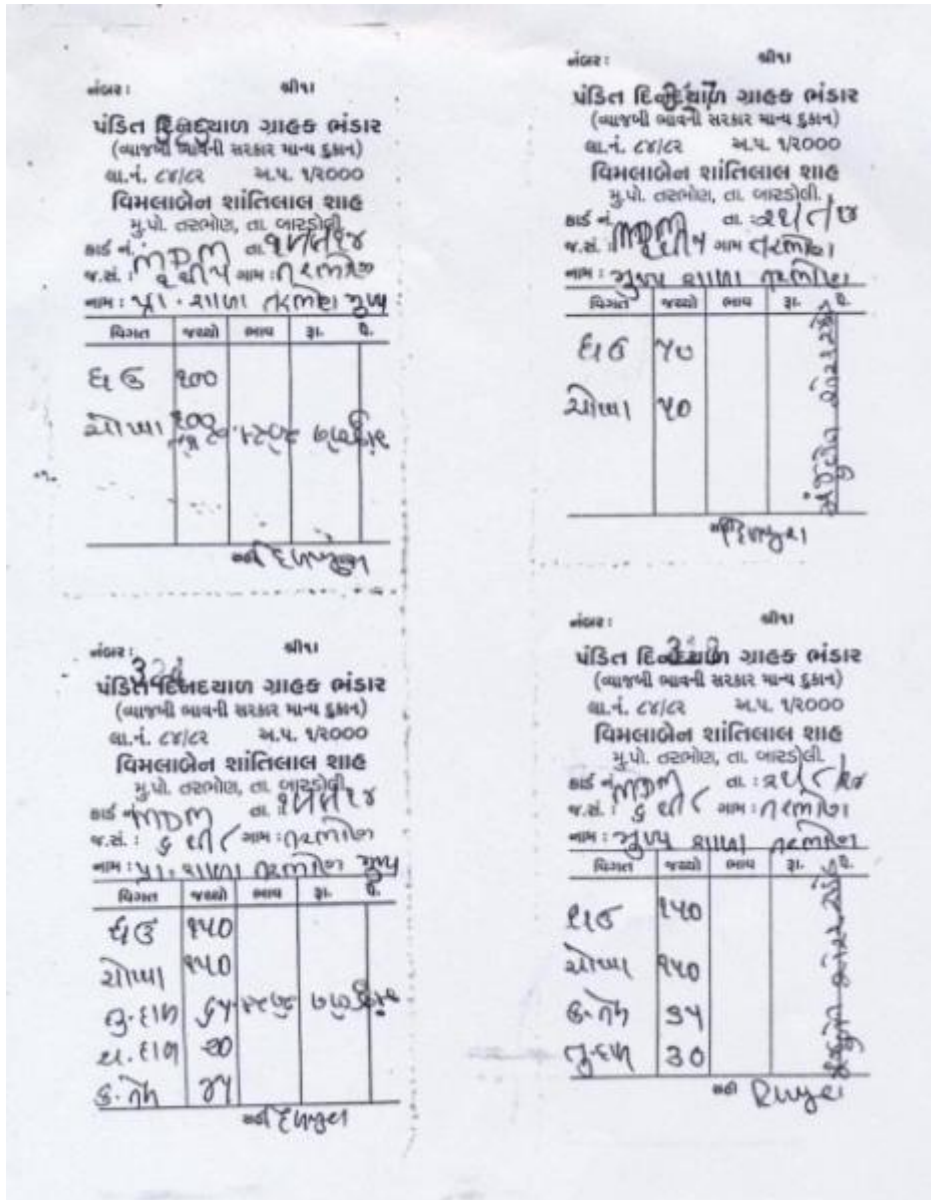 નંબર : શ્રી૧ા
પંડિત દિનદયાળ ગ્રાહક ભંડાર
(વ્યાજબી ભાવની સરકાર માન્ય દુકાન)
લા.નં. ૮૪/૮૨ અ.પ. ૧/૨૦૦૦
વિમલાબેન શાંતિલાલ શાહ
મુ.પો. તરભોણ, તા. બારડોલી.
કાર્ડ નં. MDM તા.
જ.સં. : ૨ થી ૫ ગામ : તરભોણ
નામ : પ્રા. શાળા તરભોણ મુખ્ય
વિગત જથ્થો ભાવ રૂા. પૈ.
ઘઉ ૧૦૦
ચોખા ૧૦૦
સહી
નંબર : શ્રી૧ા
પંડિત દિનદયાળ ગ્રાહક ભંડાર
(વ્યાજબી ભાવની સરકાર માન્ય દુકાન)
લા.નં. ૮૪/૮૨ અ.પ. ૧/૨૦૦૦
વિમલાબેન શાંતિલાલ શાહ
મુ.પો. તરભોણ, તા. બારડોલી.
કાર્ડ નં. MDM તા. :
જ.સં. : ગામ તરભોણ
નામ : મુખ્ય શાળા તરભોણ
વિગત જથ્થો ભાવ રૂા. પૈ.
ઘઉ ૫૦
ચોખા ૫૦
સહી
નંબર : શ્રી૧ા
પંડિત દિનદયાળ ગ્રાહક ભંડાર
(વ્યાજબી ભાવની સરકાર માન્ય દુકાન)
લા.નં. ૮૪/૮૨ અ.પ. ૧/૨૦૦૦
વિમલાબેન શાંતિલાલ શાહ
મુ.પો. તરભોણ, તા. બારડોલી.
કાર્ડ નં. MDM તા.
જ.સં. : ૬ થી ૮ ગામ : તરભોણ
નામ : પ્રા. શાળા તરભોણ મુખ્ય
વિગત જથ્થો ભાવ રૂા. પૈ.
ઘઉ ૧૫૦
ચોખા ૧૫૦
તુ. દાળ
ચ. દાળ ૨૦
ક. તેલ ૪૫
સહી
નંબર : શ્રી૧ા
પંડિત દિનદયાળ ગ્રાહક ભંડાર
(વ્યાજબી ભાવની સરકાર માન્ય દુકાન)
લા.નં. ૮૪/૮૨ અ.પ. ૧/૨૦૦૦
વિમલાબેન શાંતિલાલ શાહ
મુ.પો. તરભોણ, તા. બારડોલી.
કાર્ડ નં. MDM તા. :
જ.સં. : ૬ થી ૮ ગામ : તરભોણ
નામ : મુખ્ય શાળા તરભોણ
વિગત જથ્થો ભાવ રૂા. પૈ.
ઘઉ ૧૫૦
ચોખા ૧૫૦
ક. તેલ ૩૫
તુ. દાળ ૩૦
સહી